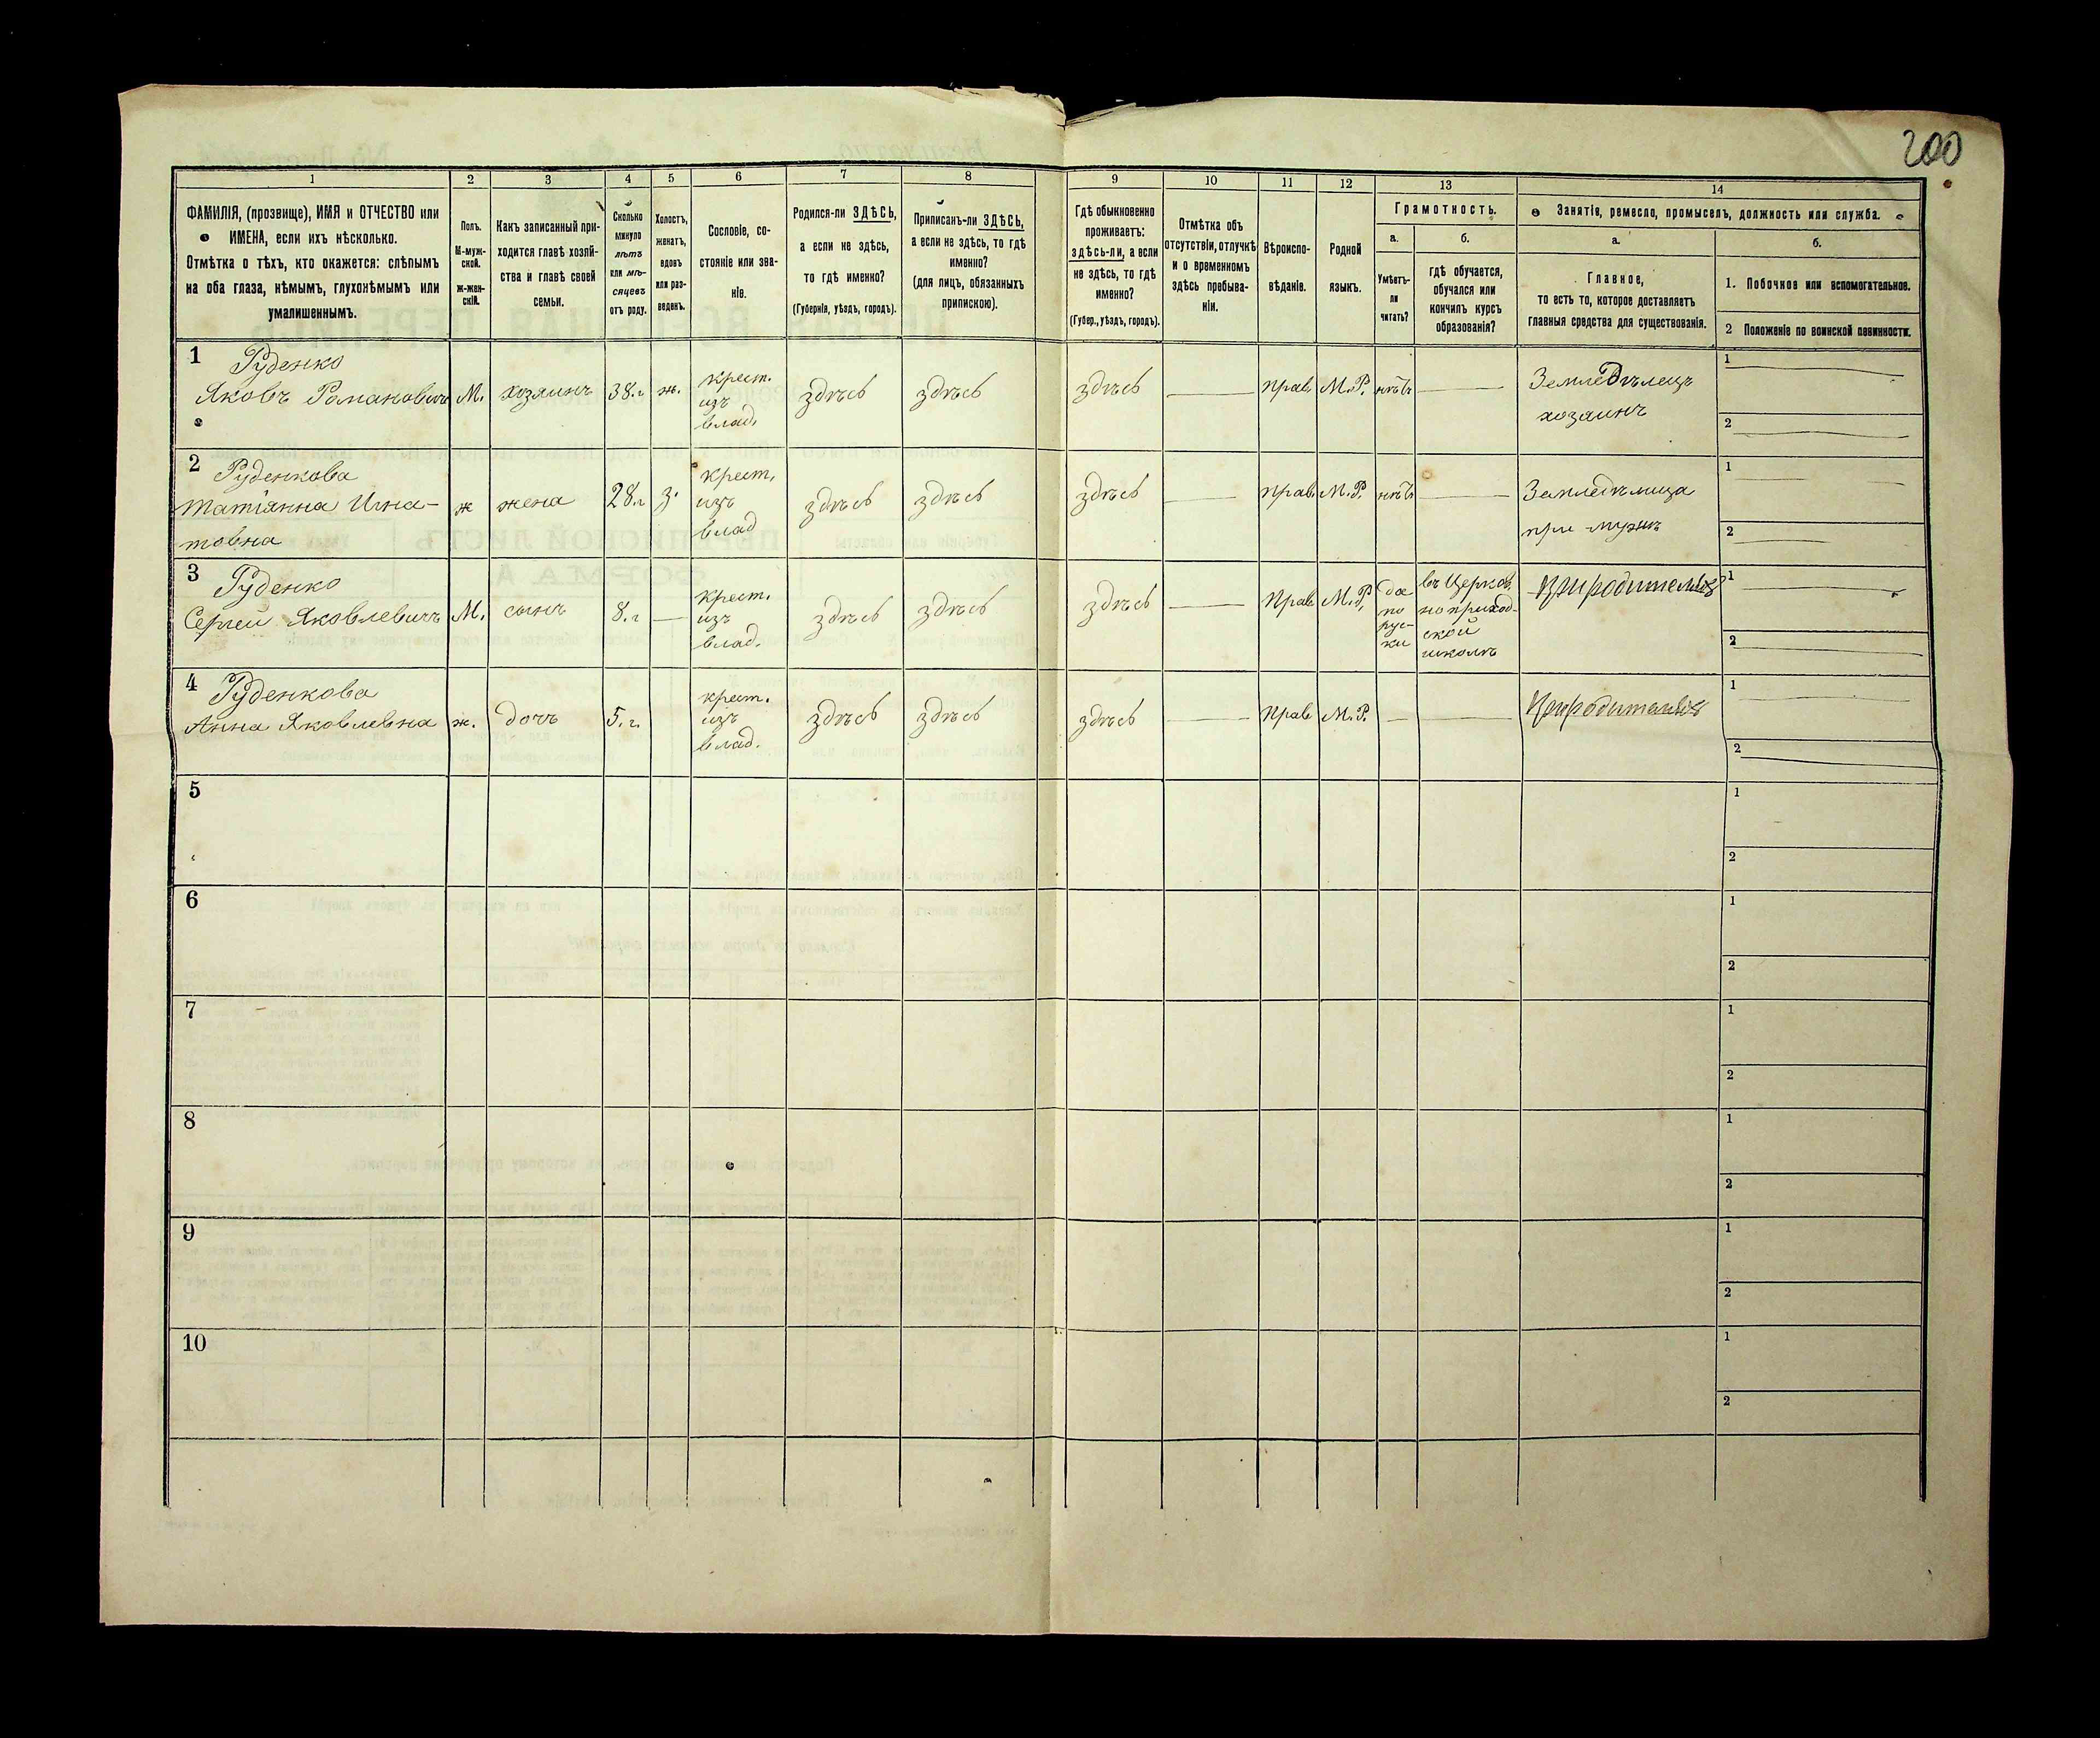 200
1
2
3
4
5
6
7
8
9
10
11
12
13
14
ФАМИЛІЯ, (прозвище), ИМЯ и ОТЧЕСТВО или
ИМЕНА, если ихъ нѣсколько.
Отмѣтка о тѣхъ, кто окажется: слѣпымъ
на оба глаза, нѣмымъ, глухонѣмымъ или
умалишеннымъ.
Полъ.
М-муж-
ской.
ж-жен-
скій.
Какъ записанный при-
ходится главѣ хозяй-
ства и главѣ своей
семьи.
Сколько
минуло
лѣтъ
или мѣ-
сяцевъ
отъ роду.
Холостъ,
женатъ,
вдовъ
или раз-
веденъ.
Сословіе, со-
стояніе или зва-
ніе.
Родился-ли ЗДѢСЬ,
а если не здѣсь,
то гдѣ именно?
(Губернія, уѣздъ, городъ).
Приписанъ-ли ЗДѢСЬ,
а если не здѣсь, то гдѣ
именно?
(для лицъ, обязанныхъ
припискою).
Гдѣ обыкновенно
проживаетъ:
здѣсь-ли, а если
не здѣсь, то гдѣ
именно?
(Губер., уѣздъ, городъ).
Отмѣтка объ
отсутствіи, отлучкѣ
и о временномъ
здѣсь пребыва-
ніи.
Вѣроиспо-
вѣданіе.
Родной
языкъ.
Грамотность.
а.
Умѣетъ-
ли
читать?
б.
гдѣ обучается,
обучался или
кончилъ курсъ
образованія?
Занятія, ремесло, промыселъ, должность или служба.
а.
Главное,
то есть то, которое доставляетъ
главныя средства для существованія.
б.
1. Побочное или вспомогательное.
2 Положеніе по воинской повинности.
1
Руденко
Яковъ Романовичъ
М.
хозяинъ
38.г
ж.
крест.
изъ
влад.
здѣсь
здѣсь
здѣсь
прав.
М.Р.
нѣтъ
Земледѣлецъ
хозаинъ
1
2
2
Руденкова
Татіянна Игна-
товна
ж
жена
28г
з.
крест.
изъ
влад
здѣсь
здѣсь
здѣсь
прав.
М.Р.
нѣтъ
Земледѣлица
при мужѣ
1
2
3
Руденко
Сергей Яковлевичъ
М.
сынъ
8.г
крест.
изъ
влад.
здѣсь
здѣсь
здѣсь
Прав
М.Р.
да
по
рус-
ки
въ Церков
но приход-
ской
школѣ
При родителяхъ
1
2
4
Руденкова
Анна Яковлевна
ж.
дочь
5.г.
крест.
изъ
влад.
здѣсь
здѣсь
здѣсь
Прав
М.Р.
При родителяхъ
1
2
5
1
2
6
1
2
7
1
2
8
1
2
9
1
2
10
1
2